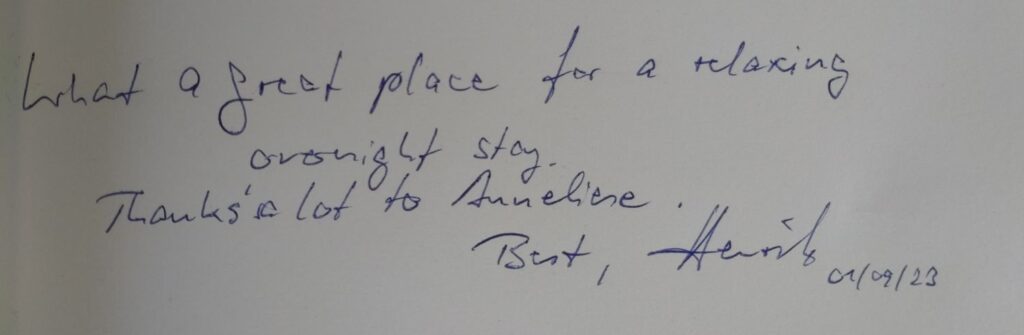 What a great place for a relaxing
overnight stay.
Thanks'a lot to Anneliese.
Best, Henrik 01/09/23